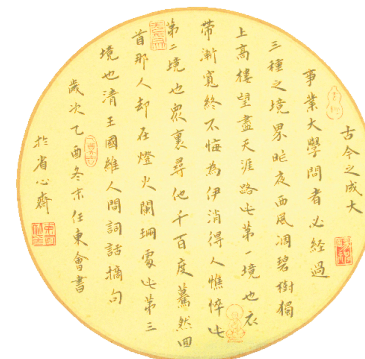 古今之成大
事業大學問者必經過
三種之境界昨夜西風凋碧樹獨
上高樓望盡天涯路此第一境也衣
帶漸寬終不悔為伊消得人憔悴此
第二境也眾裏尋他千百度驀然回
首那人却在燈火闌珊處此第三
境也清王國維人間詞話摘句
歲次乙酉冬京任東會書
於省心齋